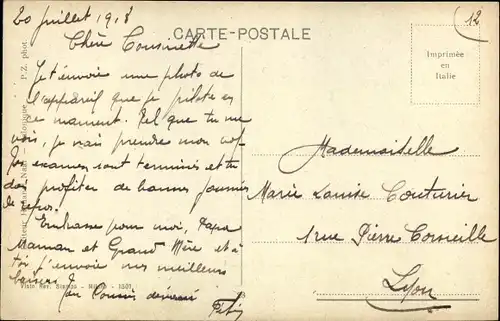 20 juillet 1918
CARTE-POSTALE
12
Imprimée
en
Italie
Chère Cousinette
Je t'envoie une photo de
l'appareil que je pilote en
ce moment. Tel que tu me
vois, je vais prendre mon vol
Tes examens sont terminés et tu
dois profiter de bonnes journées
de repos.
Embrasse pour moi, Papa
Maman et Grand Mère et à
toi j'envoie mes meilleurs
baisers
Ton Cousin dévoué
Mademoiselle
Marie Louise Couturier
1 rue Pierre Corneille
Lyon
P.Z. phot
Visto Rev. Stampa - Milano - 1501